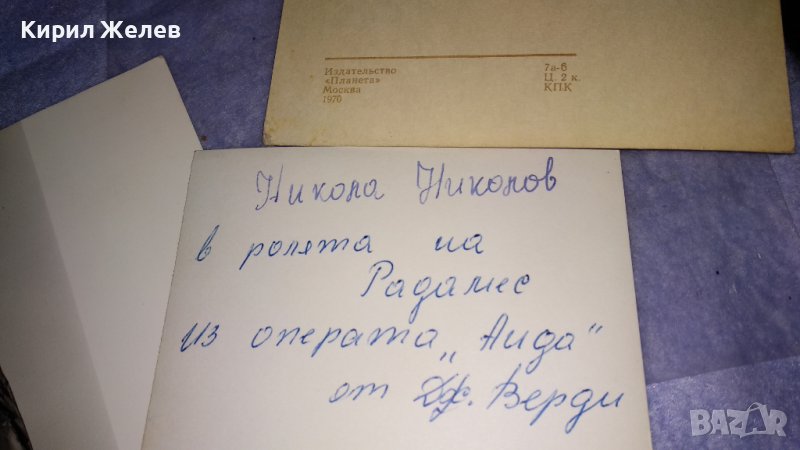 Кирил Желев
Издательство
«Планета»
Москва
1970
7а-6
Ц. 2 к.
КПК
Никола Николов
в ролята на
Радамес
из операта „Аида“
от Дж. Верди
BAZAR